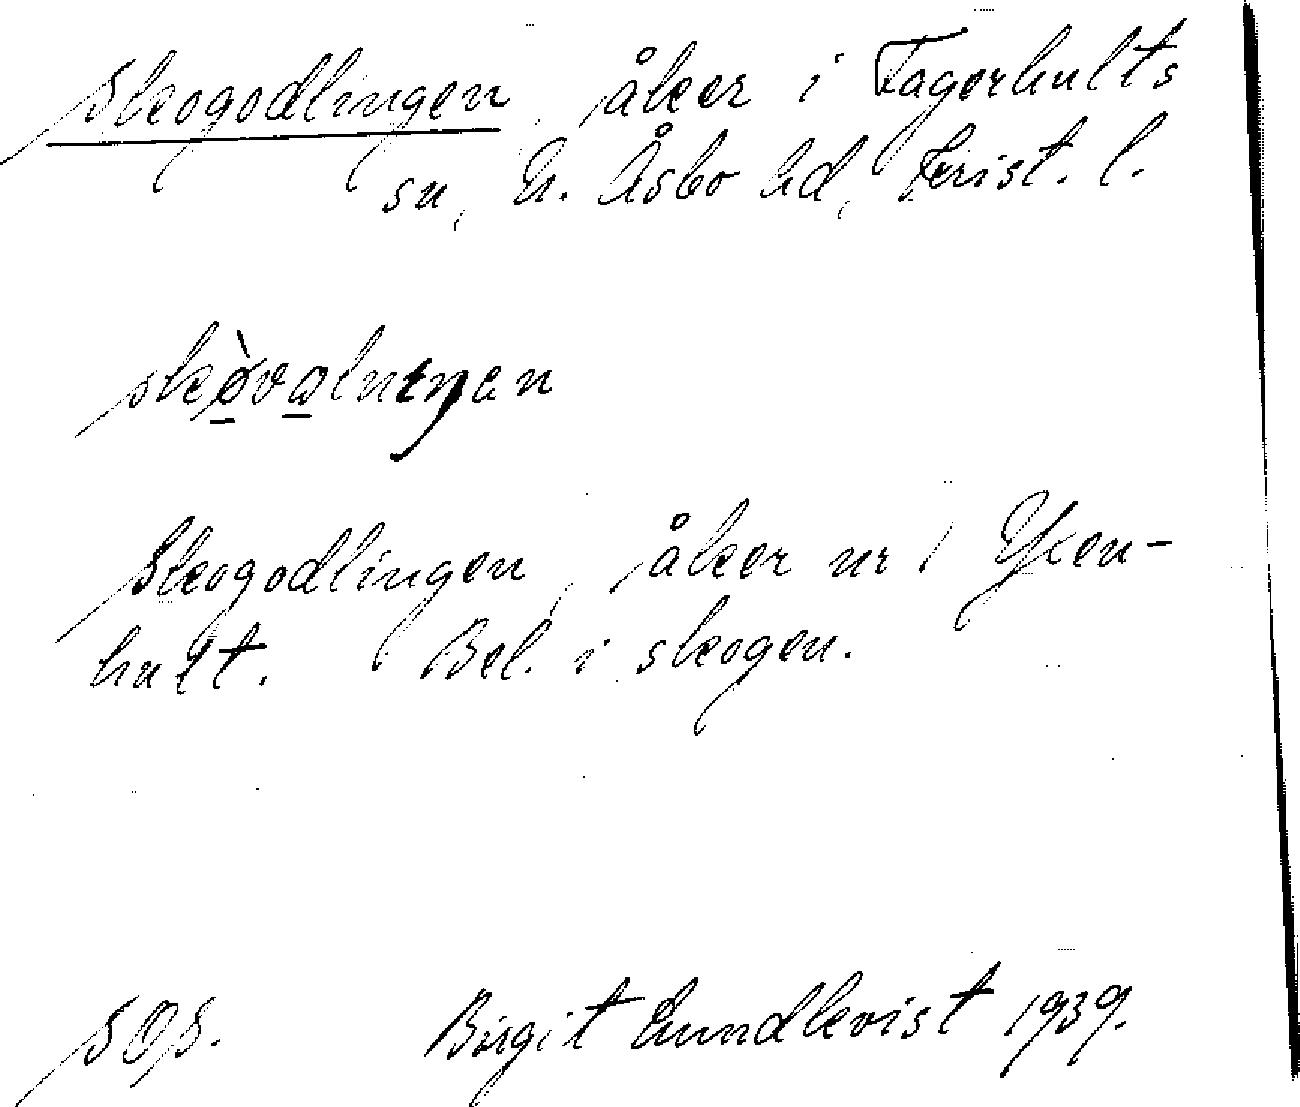 Skogodlingen, åker i Fagerhults
sn, N. Åsbo hd, Krist. l.
Skogodlingen, åker nr 1 Yxen-
hult. Bel. i skogen.
SOS. Birgit Lundkvist 1939.